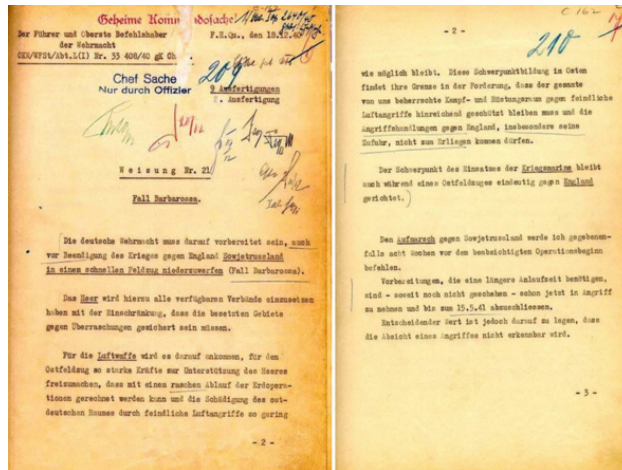 Geheime Kommandosache!
Der Führer und Oberste Befehlshaber
der Wehrmacht
F.H.Qu., den 18.12.40
OKW/WFSt/Abt.L(I) Nr. 33 408/40 gK Ch
Chef Sache
Nur durch Offizier
209
9 Ausfertigungen
2. Ausfertigung
Weisung Nr. 21
Fall Barbarossa.
Die deutsche Wehrmacht muss darauf vorbereitet sein, auch
vor Beendigung des Krieges gegen England Sowjetrussland
in einem schnellen Feldzug niederzuwerfen (Fall Barbarossa).
Das Heer wird hierzu alle verfügbaren Verbände einzusetzen
haben mit der Einschränkung, dass die besetzten Gebiete
gegen Überraschungen gesichert sein müssen.
Für die Luftwaffe wird es darauf ankommen, für den
Ostfeldzug so starke Kräfte zur Unterstützung des Heeres
freizumachen, dass mit einem raschen Ablauf der Erdopera-
tionen gerechnet werden kann und die Schädigung des ost-
deutschen Raumes durch feindliche Luftangriffe so gering
- 2 -
- 2 -
C 162
210
wie möglich bleibt. Diese Schwerpunktbildung im Osten
findet ihre Grenze in der Forderung, dass der gesamte
von uns beherrschte Kampf- und Rüstungsraum gegen feindliche
Luftangriffe hinreichend geschützt bleiben muss und die
Angriffshandlungen gegen England, insbesondere seine
Zufuhr, nicht zum Erliegen kommen dürfen.
Der Schwerpunkt des Einsatzes der Kriegsmarine bleibt
auch während eines Ostfeldzuges eindeutig gegen England
gerichtet.
Den Aufmarsch gegen Sowjetrussland werde ich gegebenen-
falls acht Wochen vor dem beabsichtigten Operationsbeginn
befehlen.
Vorbereitungen, die eine längere Anlaufzeit benötigen,
sind - soweit noch nicht geschehen - schon jetzt in Angriff
zu nehmen und bis zum 15.5.41 abzuschliessen.
Entscheidender Wert ist jedoch darauf zu legen, dass
die Absicht eines Angriffes nicht erkennbar wird.
- 3 -